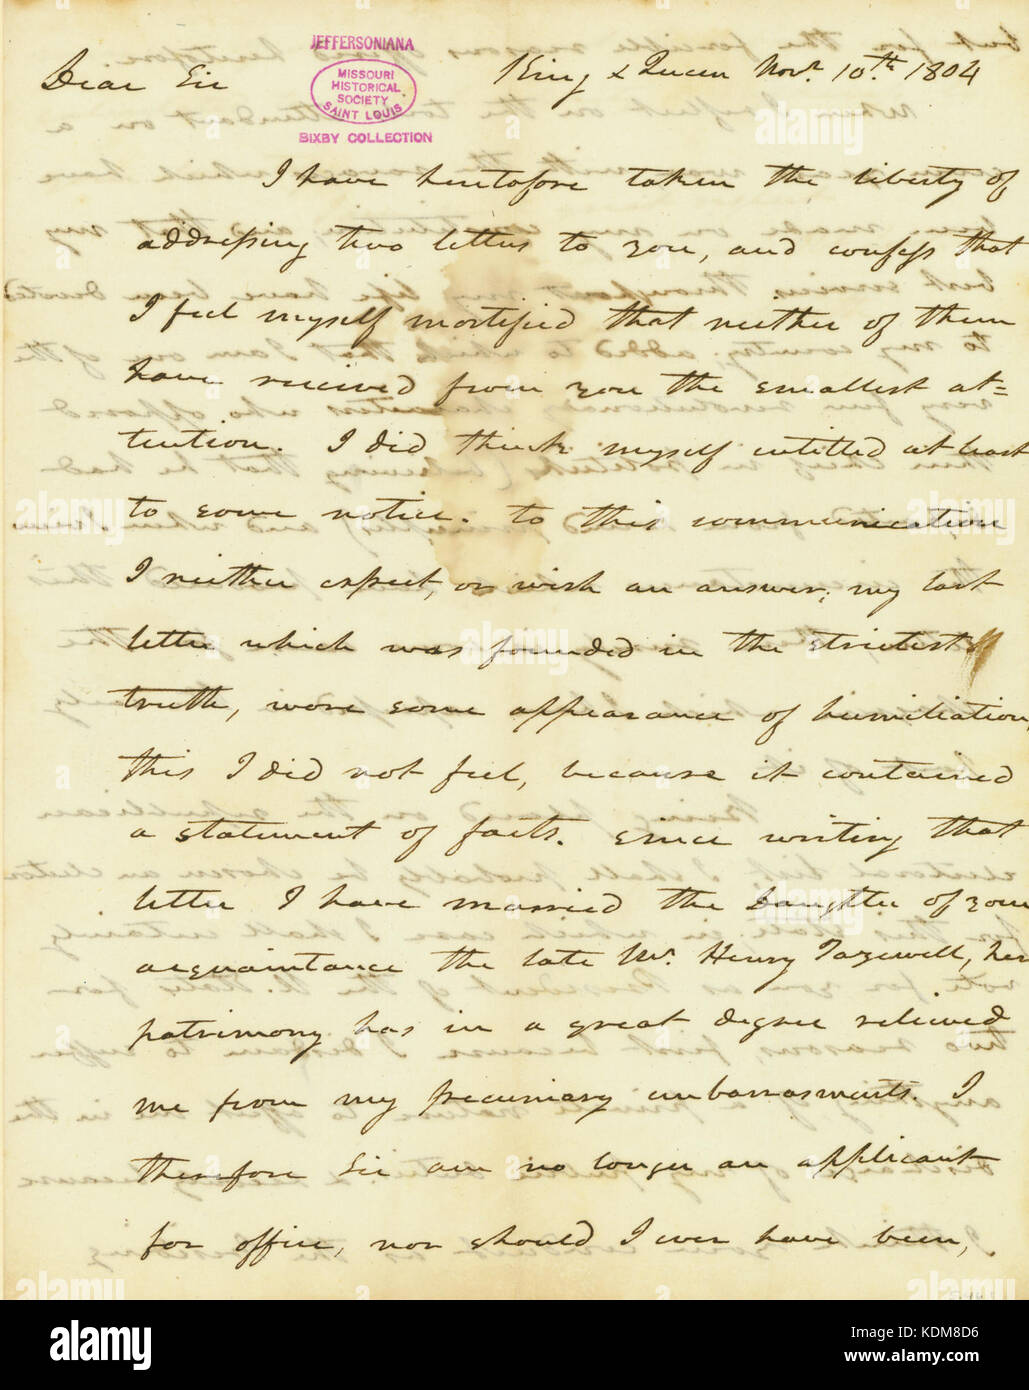 JEFFERSONIANA
MISSOURI
HISTORICAL
SOCIETY
SAINT LOUIS
BIXBY COLLECTION
King & Queen Novr. 10th. 1804
Dear Sir
I have heretofore taken the liberty of
addressing two letters to you, and confess that
I feel myself mortified that neither of them
have received from you the smallest at=
tention. I did think myself entitled at least
to some notice. to this communication
I neither expect, or wish an answer; my last
letter which was founded in the strictest
truth, wore some appearance of humiliation,
this I did not feel, because it contained
a statement of facts. since writing that
letter I have married the daughter of your
acquaintance the late Mr. Henry Tazewell, her
patrimony has in a great degree relieved
me from my pecuniary embarrasments. I
therefore Sir am no longer an applicant
for office, nor should I ever have been,
alamy
Image ID: KDM8D6
www.alamy.com